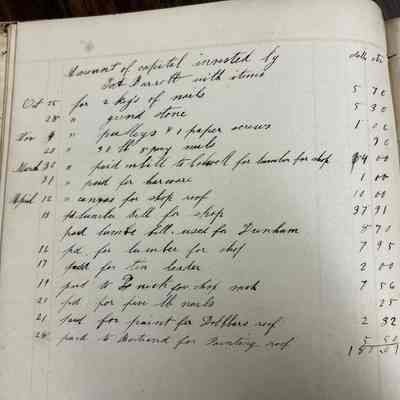 Amount of capital invested by
Pat Parrott with items dolls cts
Oct 25 for 2 kegs of nails 5 70
28 " grind stone 5 30
Nov 9 " pulleys & 1 paper screws 1 00
20 " 30 lb spray nails 90
March 30 " paid to bill to for lumber for shop 14 00
31 " paid for harware 1 00
April 12 " canvas for shop roof 10 00
18 pd lumber bill for shop 37 91
paid lumber bill used for Dunham 8 70
16 pd for lumber for shop 7 95
17 paid for tin leader 2 00
19 paid to for shop 7 56
21 pd for five lb nails 25
21 paid for paint for Dobbers roof 2 32
28 paid to for Painting roof 5 50